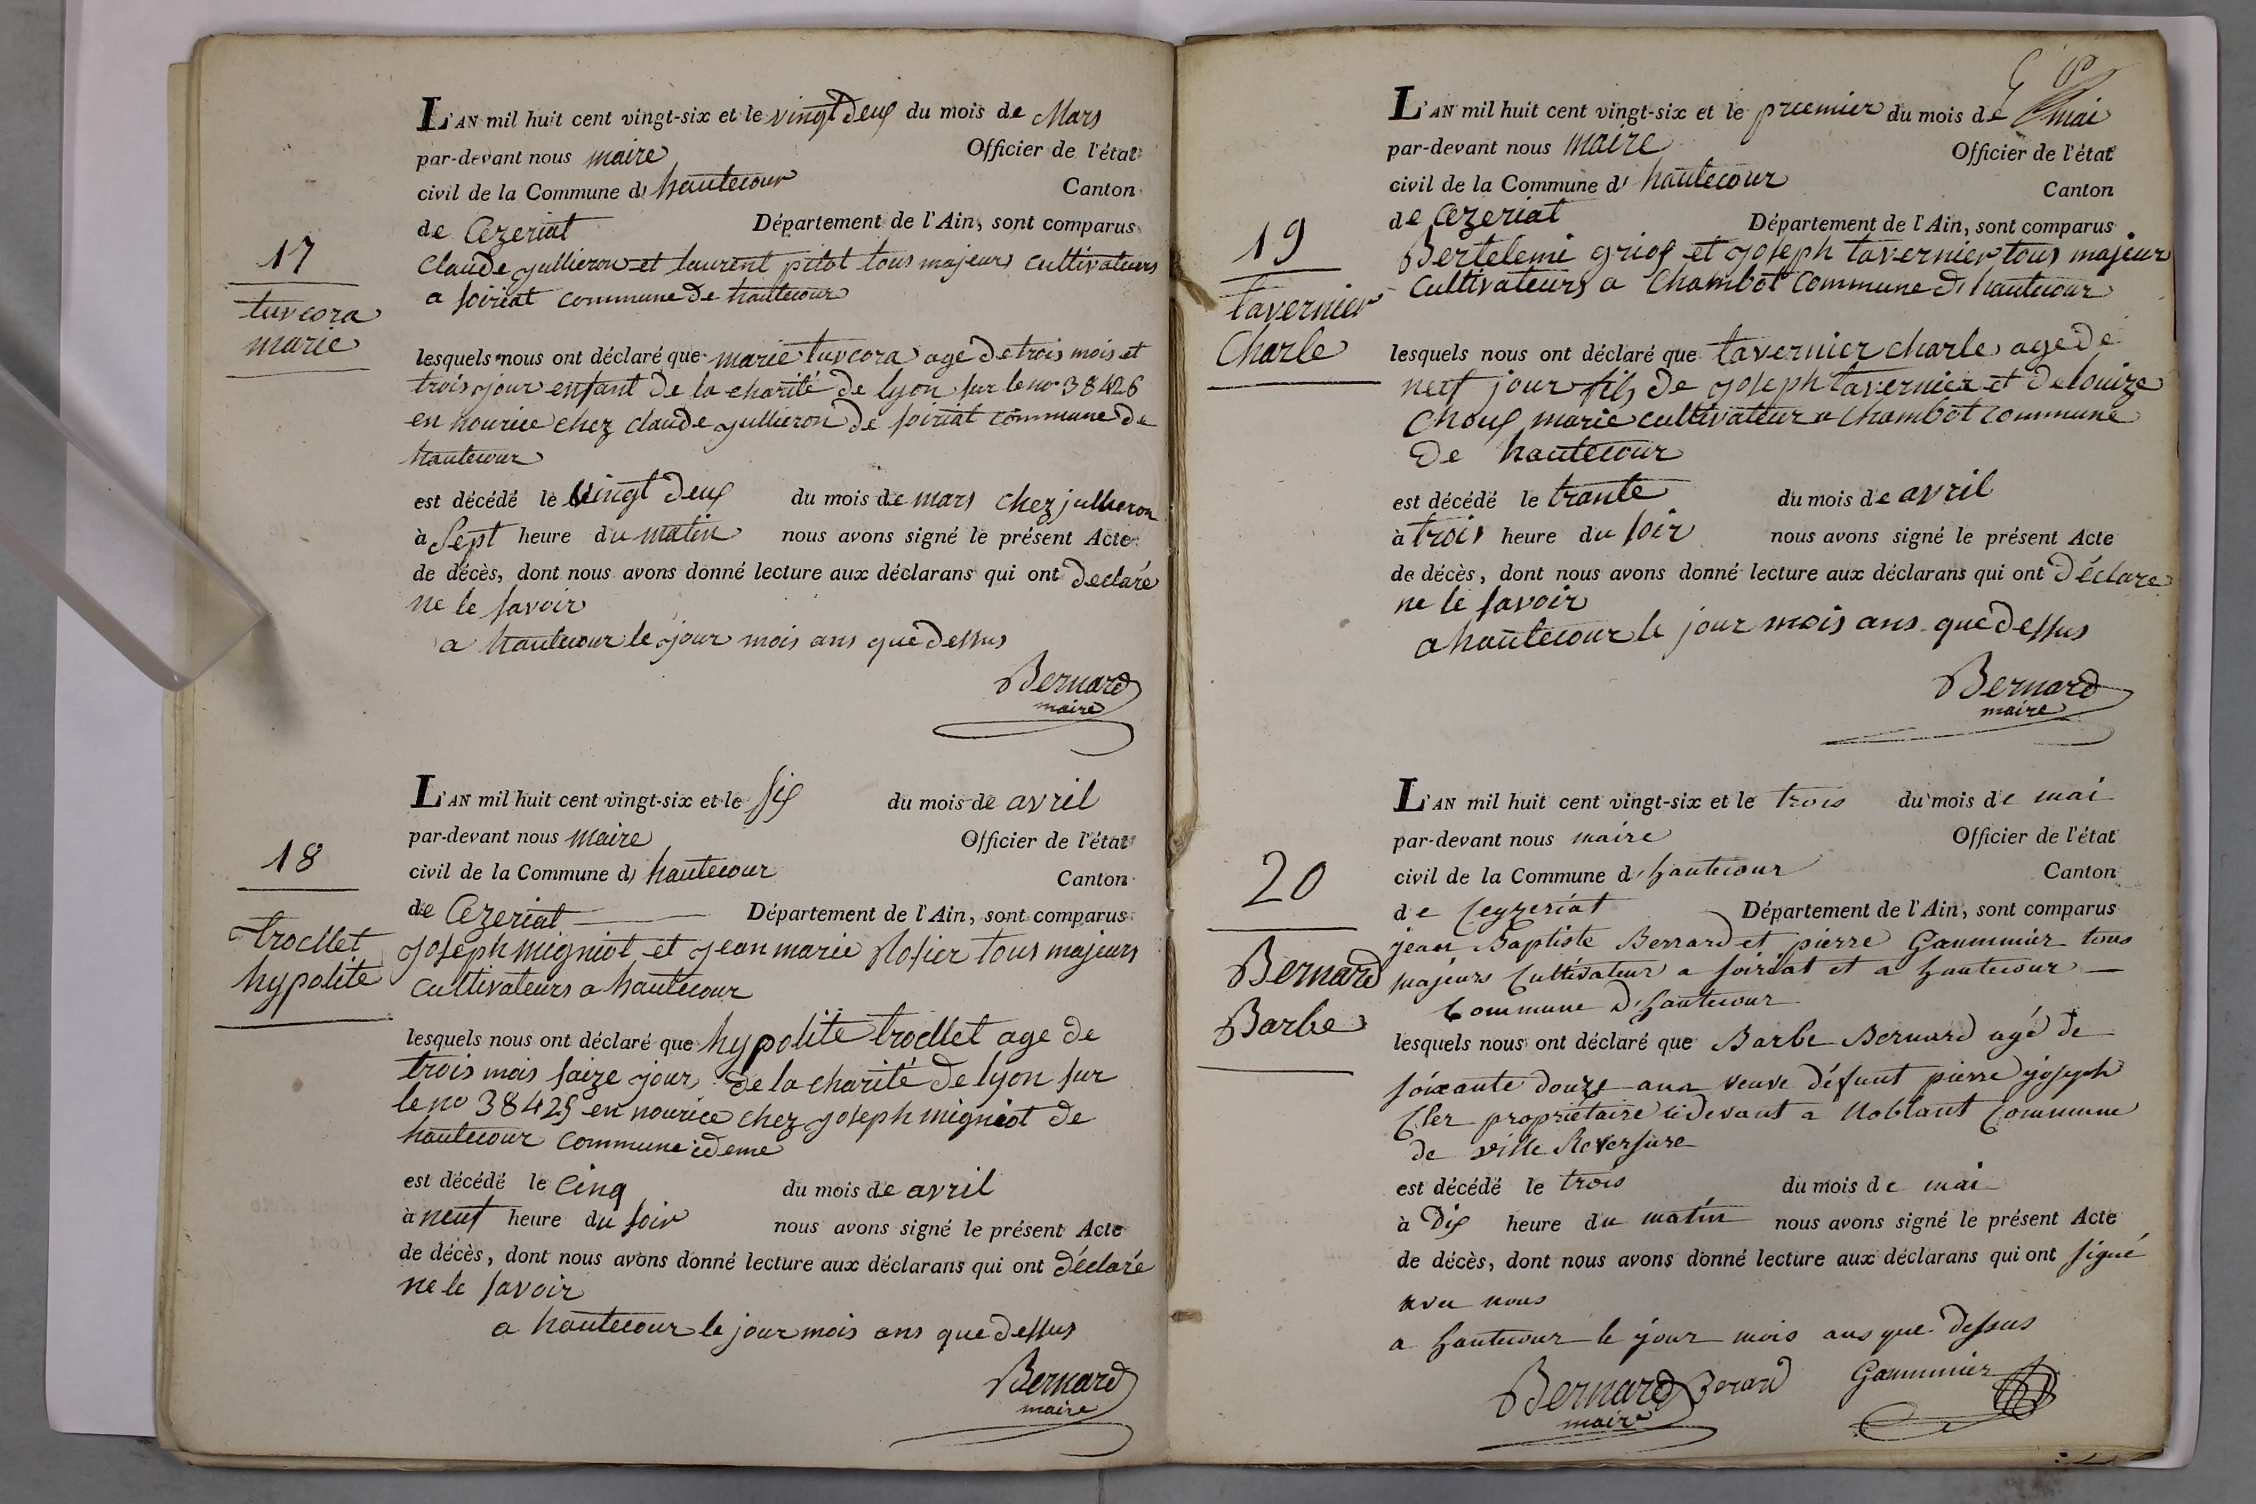 17
turcora
marie
L'AN mil huit cent vingt-six et le vingt deux du mois de Mars
par-devant nous maire Officier de l'état
civil de la Commune d' hautecour Canton
de Cezeriat Département de l'Ain, sont comparus
Claude jullieron et laurent pitot tous majeurs cultivateurs
a soiriat commune de hautecour
lesquels nous ont déclaré que marie turcora age de trois mois et
trois jour enfant de la charité de lyon sur le no 38426
en nourice chez claude jullieron de soiriat commune de
hautecour
est décédé le vingt deux du mois de mars chez jullieron
à Sept heure du matin nous avons signé le présent Acte
de décès, dont nous avons donné lecture aux déclarans qui ont declaré
ne le savoir
a hautecour le jour mois ans que dessus
Bernard
maire
18
trocllet
hypolite
L'AN mil huit cent vingt-six et le six du mois de avril
par-devant nous maire Officier de l'état
civil de la Commune d' hautecour Canton
de Cezeriat Département de l'Ain, sont comparus
joseph migniot et jean marie Rosier tous majeurs
cultivateurs a hautecour
lesquels nous ont déclaré que hypolite trocllet age de
trois mois saize jour de la charité de lyon sur
le no 38425 en nourice chez joseph migniot de
hautecour commune ideme
est décédé le cinq du mois de avril
à neuf heure du soir nous avons signé le présent Acte
de décès, dont nous avons donné lecture aux déclarans qui ont déclaré
ne le savoir
a hautecour le jour mois ans que dessus
Bernard
maire
19
tavernier
Charle
L'AN mil huit cent vingt-six et le premier du mois de mai
par-devant nous maire Officier de l'état
civil de la Commune d' hautecour Canton
de Cezeriat Département de l'Ain, sont comparus
Bertelemi griox et joseph tavernier tous majeur
cultivateurs a Chambot Commune d'hautecour
lesquels nous ont déclaré que tavernier charle age de
neuf jour fils de joseph tavernier et de louize
Choux marie cultivateur a Chambot commune
de hautecour
est décédé le trante du mois de avril
à trois heure du soir nous avons signé le présent Acte
de décès, dont nous avons donné lecture aux déclarans qui ont déclare
ne le savoir
a hautecour le jour mois ans que dessus
Bernard
maire
20
Bernard
Barbe
L'AN mil huit cent vingt-six et le trois du mois de mai
par-devant nous maire Officier de l'état
civil de la Commune d' hautecour Canton
de Ceyzeriat Département de l'Ain, sont comparus
jean Baptiste Berrard et pierre Gaummier tous
majeurs Cultivateur a soiriat et a hautecour
Commune d'hautecour
lesquels nous ont déclaré que Barbe Bernard agé de
soixante douze ans veuve défunt pierre joseph
Cler propriétaire cidevant a Noblant Commune
de ville Reversure
est décédé le trois du mois de mai
à dix heure du matin nous avons signé le présent Acte
de décès, dont nous avons donné lecture aux déclarans qui ont signé
avec nous
a hautecour le jour mois ans que dessus
Bernard Berard Gaummier
maire